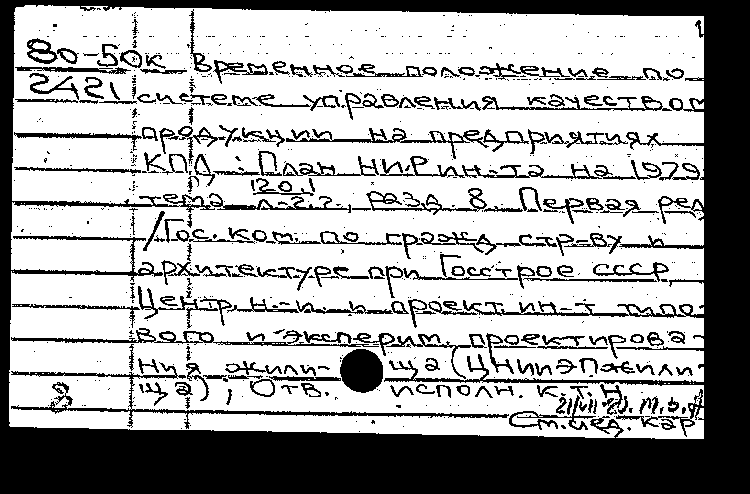 1
80-50к Временное положение по
2421 системе управления качеством
продукции на предприятиях
КПД : План НИР ин-та на 1979
тема 120.1, разд. 8. Первая ред
/Гос. ком. по гражд. стр-ву и
архитектуре при Госстрое СССР,
Центр. н.-и. и проект. ин-т типо-
вого и эксперим. проектирова-
ния жили- ща (ЦНИИЭПжили-
8 ща) ; Отв. исполн. к.т.н.
См. след. кар